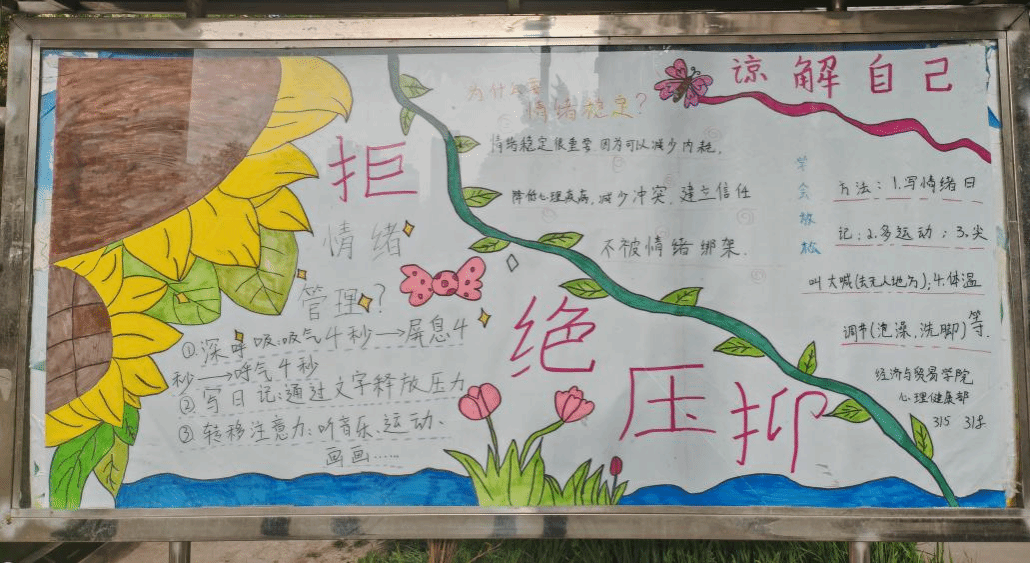 谅解自己
拒绝压抑
情绪
管理?
①深呼吸:吸气4秒→屏息4
秒→呼气4秒
②写日记:通过文字释放压力
③转移注意力:听音乐、运动、
画画……
为什么要
情绪稳定?
情绪稳定很重要,因为可以减少内耗,
降低心理疾病,减少冲突,建立信任
不被情绪绑架.
学会放松
方法:1.写情绪日
记;2.多运动;3.尖
叫大喊(去无人地方);4.体温
调节(泡澡,洗脚)等.
经济与贸易学院
心理健康部
315 318